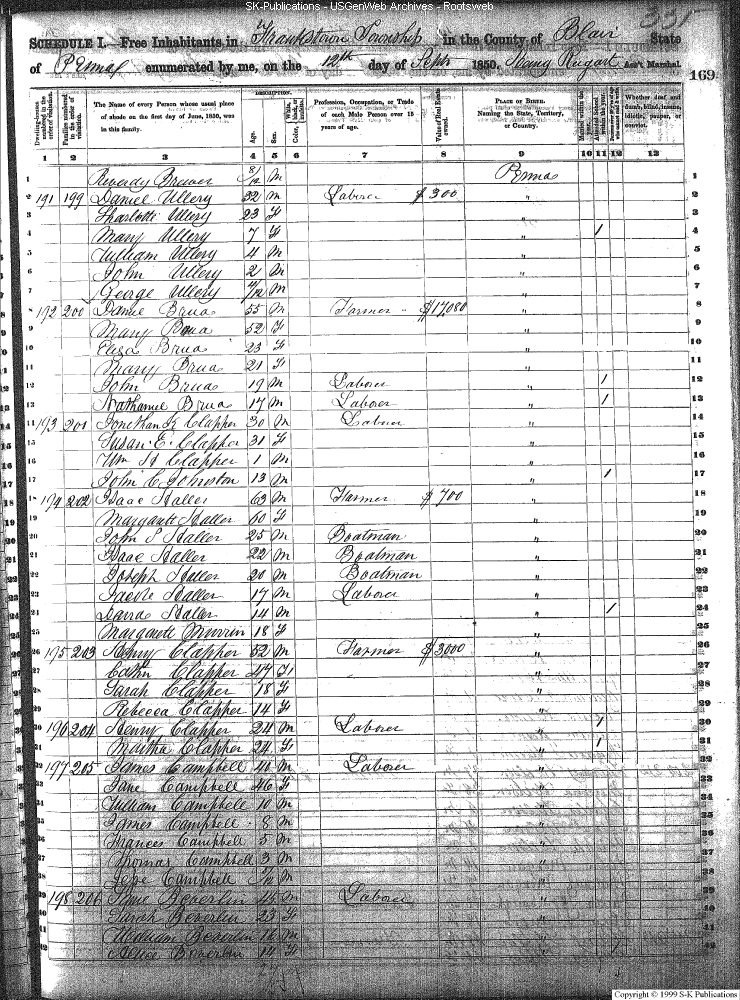 SK-Publications - USGenWeb Archives - Rootsweb
331
SCHEDULE I.—Free Inhabitants in Frankstown Township in the County of Blair State
of Penna enumerated by me, on the 12th day of Sept 1850. Ass't Marshal.
169
DESCRIPTION.
Dwelling-houses numbered in the order of visitation.
Families numbered in the order of visitation.
The Name of every Person whose usual place of abode on the first day of June, 1850, was in this family.
Age.
Sex.
Color,
Profession, Occupation, or Trade of each Male Person over 15 years of age.
Value of Real Estate owned.
PLACE OF BIRTH. Naming the State, Territory, or Country.
Married within the year.
Attended School within the year.
Whether deaf and dumb, blind, insane, idiotic, pauper, or convict.
1 2 3 4 5 6 7 8 9 10 11 12 13
1 Brewer 8/12 M Penna 1
2 191 199 Daniel Ullery 32 M Laborer $300 " 2
3 Charlotte Ullery 23 F " 3
4 Mary Ullery 7 F " 1 4
5 William Ullery 4 M " 5
6 John Ullery 2 M " 6
7 George Ullery M " 7
8 192 200 Daniel Brua 55 M Farmer $17,080 " 8
9 Mary Brua 52 F " 9
10 Eliza Brua 23 F " 10
11 Mary Brua 21 F " 11
12 John Brua 19 M Laborer " 1 12
13 Nathaniel Brua 17 M Laborer " 1 13
14 193 201 Jonathan K Clapper 30 M Laborer " 14
15 Susan E. Clapper 31 F " 15
16 Wm H Clapper 1 M " 16
17 John C Johnston 13 M " 1 17
18 194 202 Isaac Haller 63 M Farmer $700 " 18
19 Margaret Haller 60 F " 19
20 John S Haller 25 M Boatman " 20
21 Isaac Haller 22 M Boatman " 21
22 Joseph Haller 20 M Boatman " 22
23 Haller 17 M Laborer " 23
24 Haller 14 M " 1 24
25 Margaret 18 F " 25
26 195 203 Henry Clapper 52 M Farmer $3000 " 26
27 Clapper 47 F " 27
28 Sarah Clapper 18 F " 28
29 Rebecca Clapper 14 F " 29
30 196 204 Henry Clapper 24 M Laborer " 1 30
31 Martha Clapper 24 F " 1 31
32 197 205 James Campbell 40 M Laborer " 32
33 Jane Campbell 46 F " 33
34 William Campbell 10 M " 34
35 James Campbell 8 M " 35
36 Frances Campbell 5 M " 36
37 Thomas Campbell 3 M " 37
38 Jesse Campbell M " 38
39 198 206 Beverlin 45 M Laborer " 39
40 Sarah Beverlin 23 F " 40
41 William Beverlin 16 M " 41
42 Beverlin 14 F " 42
Copyright © 1999 S-K Publications